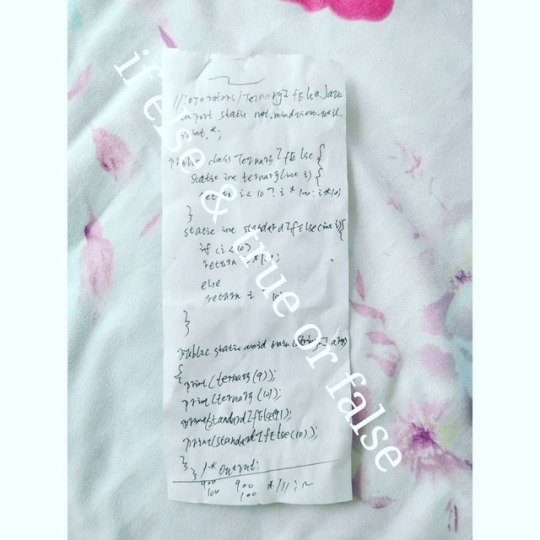 //: operators/TernaryIfElse.java
import static net.mindview.util.
print.*;
public class TernaryIfElse {
static int ternary(int i) {
return i < 10 ? i * 100 : i * 10;
}
static int standardIfElse(int i) {
if (i < 10)
return i * 100;
else
return i * 10;
}
}
public static void main (String[] args)
{
print(ternary(9));
print(ternary(10));
print(standardIfElse(9));
print(standardIfElse(10));
}
} /* Output:
900 900
100 100 *///:~
if else & true or false